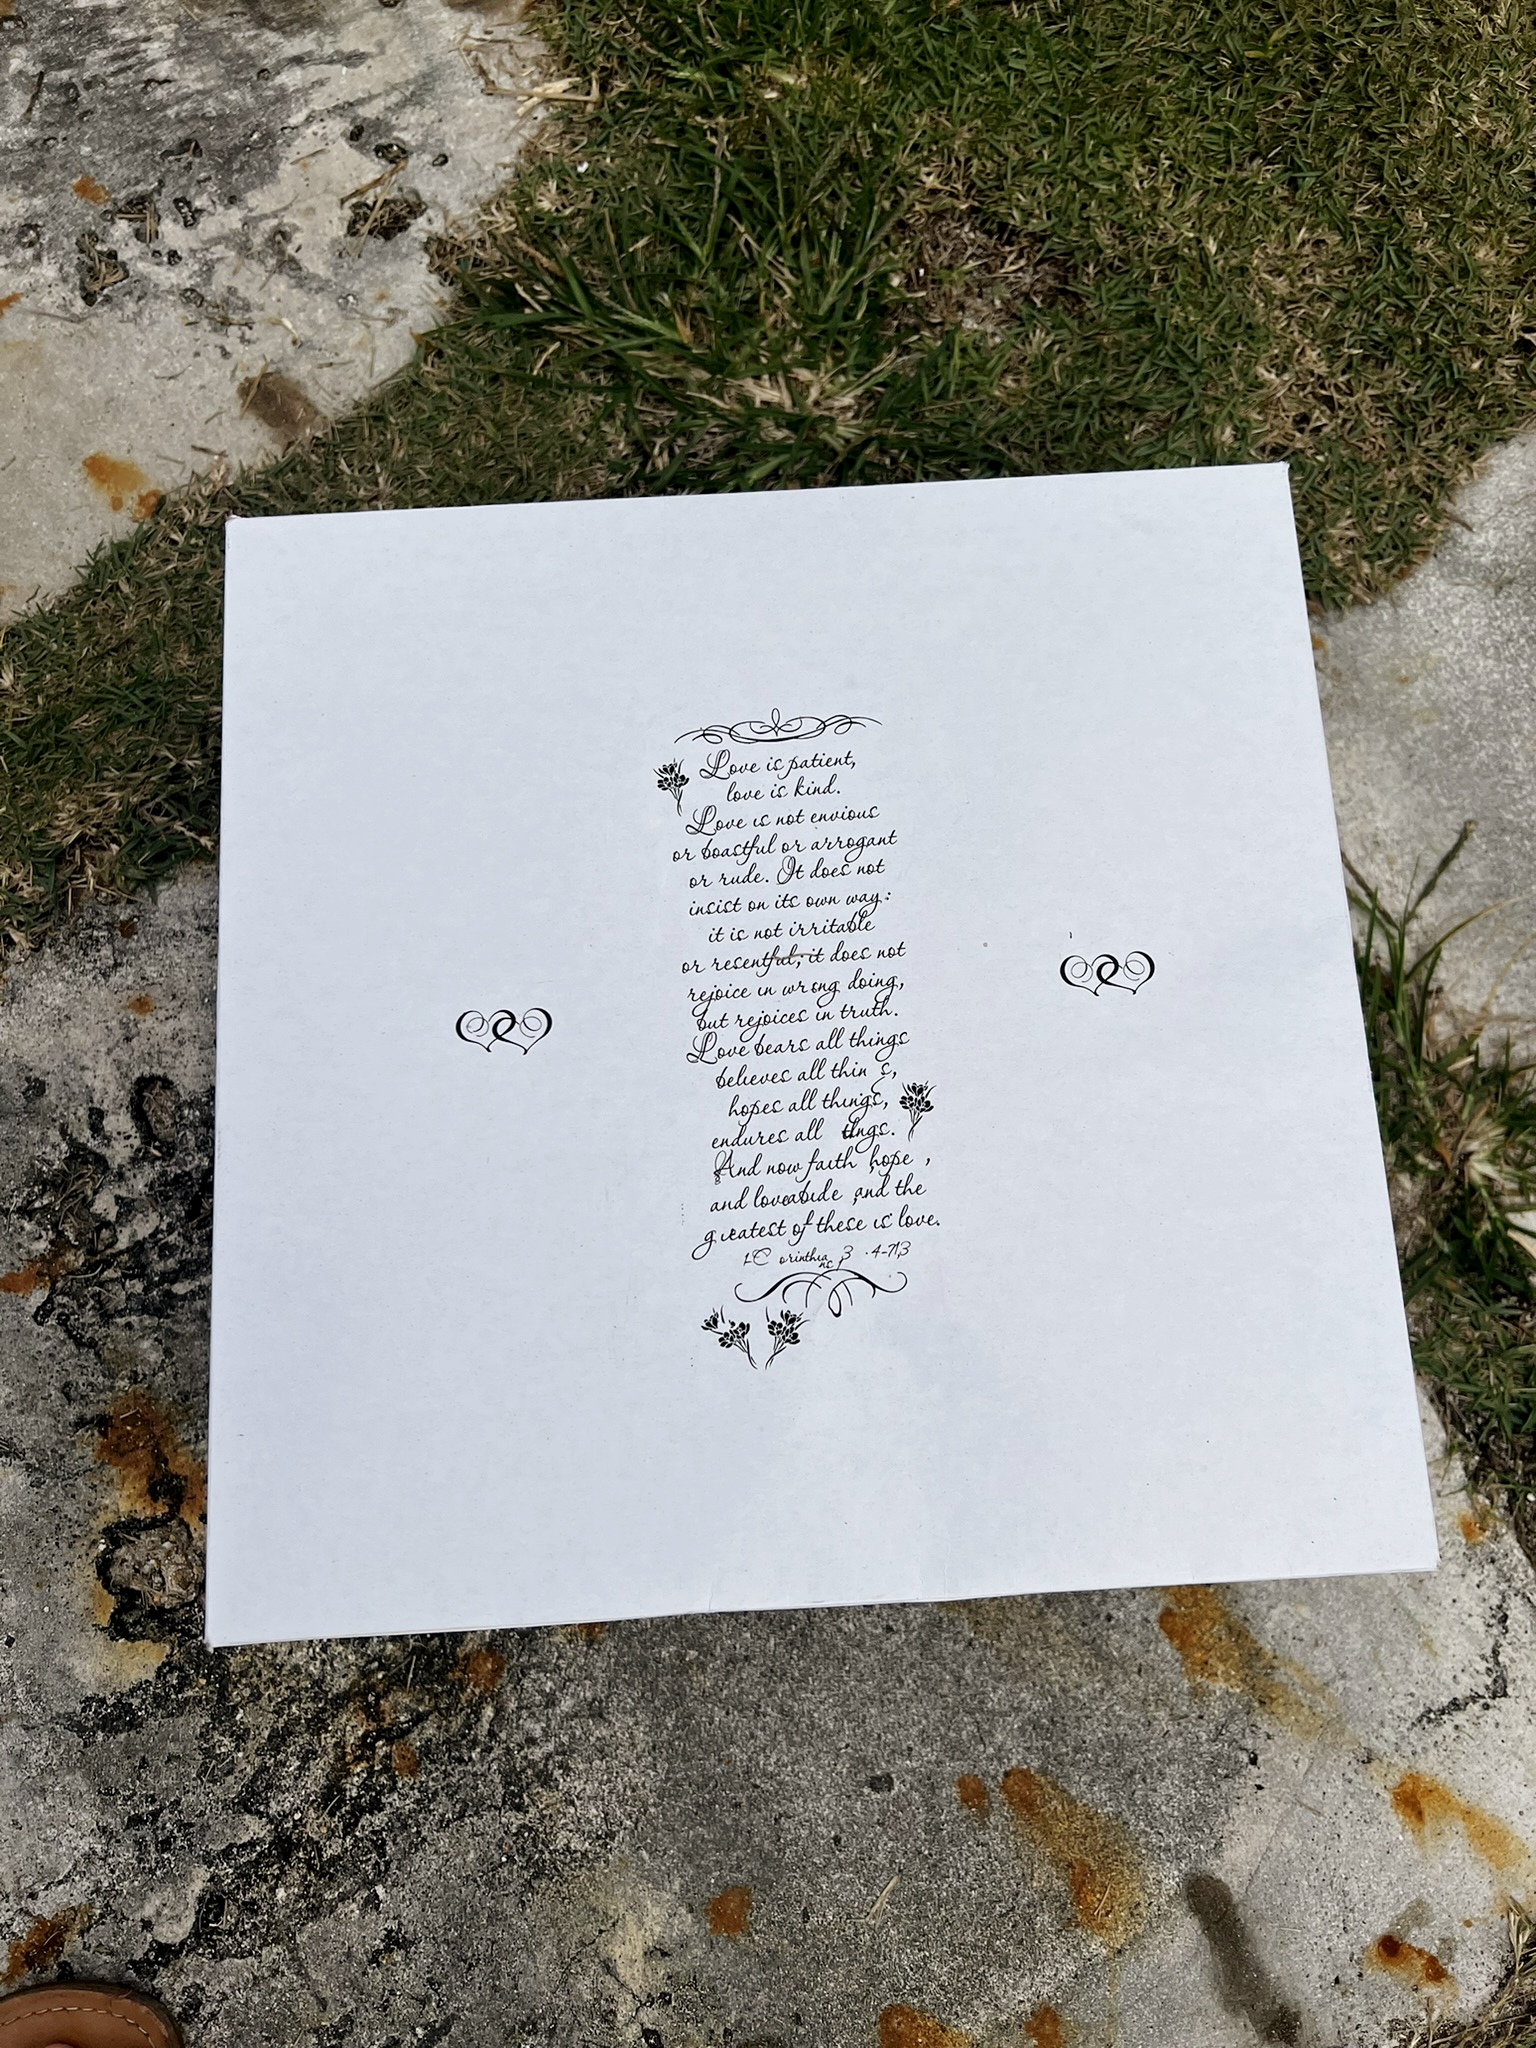 Love is patient,
love is kind.
Love is not envious
or boastful or arrogant
or rude. It does not
insist on its own way:
it is not irritable
or resentful; it does not
rejoice in wrong doing,
but rejoices in truth.
Love bears all things
believes all thin s,
hopes all things,
endures all tings.
And now faith hope ,
and loveabide ,and the
greatest of these is love.